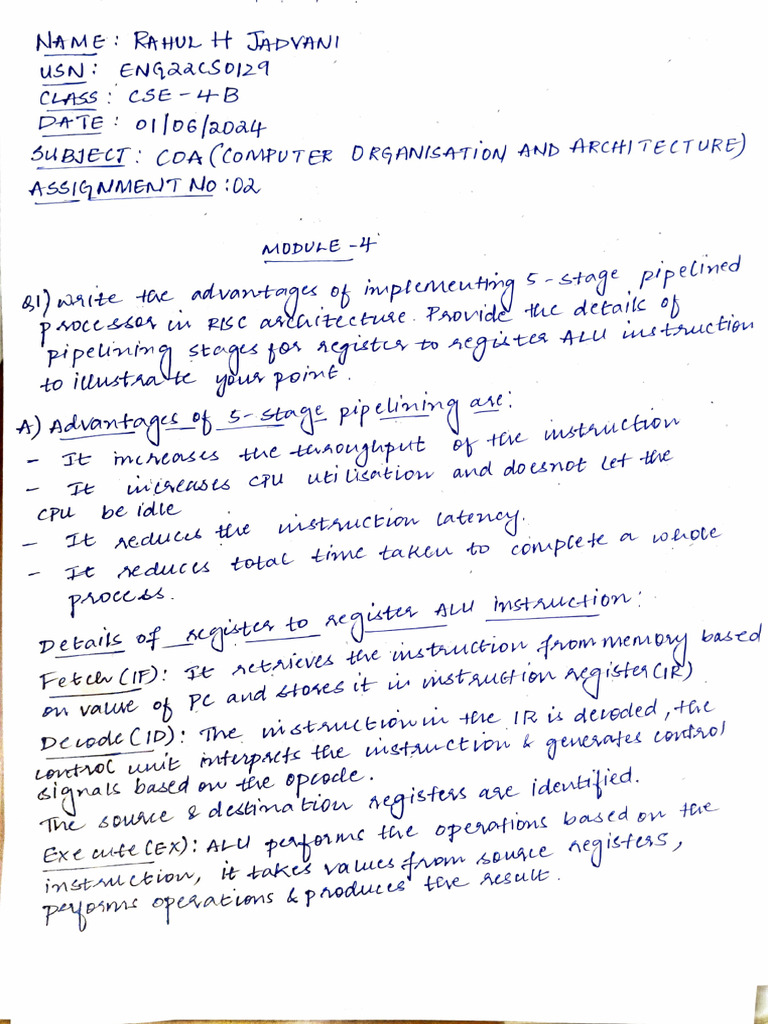 NAME: RAHUL H JADVANI
USN: ENG22CS0129
CLASS: CSE-4B
DATE: 01/06/2024
SUBJECT: COA (COMPUTER ORGANISATION AND ARCHITECTURE)
ASSIGNMENT NO: 02
MODULE-4
Q1) Write the advantages of implementing 5-stage pipelined
processor in RISC architecture. Provide the details of
pipelining stages for register to register ALU instruction
to illustrate your point.
A) Advantages of 5-stage pipelining are:
- It increases the throughput of the instruction
- It increases CPU utilisation and doesnot let the
CPU be idle
- It reduces the instruction latency.
- It reduces total time taken to complete a whole
process.
Details of register to register ALU instruction:
Fetch(IF): It retrieves the instruction from memory based
on value of PC and stores it in instruction register(IR)
Decode(ID): The instruction in the IR is decoded, the
control unit interprets the instruction & generates control
signals based on the opcode.
The source & destination registers are identified.
Execute(EX): ALU performs the operations based on the
instruction, it takes values from source registers,
performs operations & produces the result.